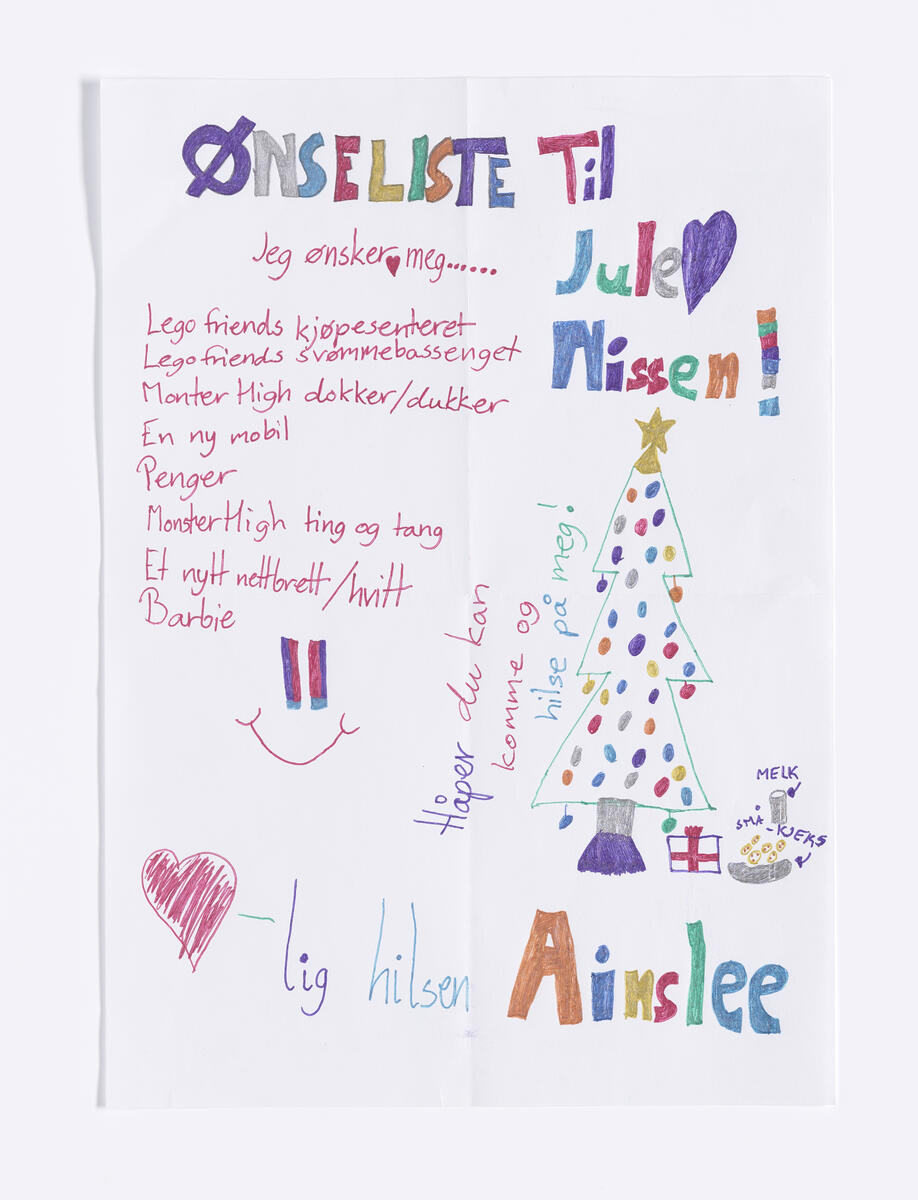 ØNSELISTE Til
Jule
Nissen!
Jeg ønsker meg......
Lego friends kjøpesenteret
Lego friends svømmebassenget
Monter High dokker/dukker
En ny mobil
Penger
Monster High ting og tang
Et nytt nettbrett/hvitt
Barbie
Håper du kan
komme og
hilse på meg!
MELK
SMÅ-KJEKS
-lig hilsen Ainslee